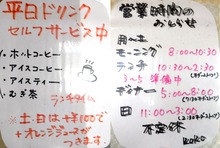 平日ドリンク
セルフサービス中
・ホットコーヒー
・アイスコーヒー
・アイスティー
・むぎ茶
ランチタイム
土・日は+¥100で
+オレンジジュースが
つきます。
営業時間の
おしらせ
月〜土
モーニング 8:00〜10:30
ランチ 10:30〜2:30
3〜5 準備中
ディナー 5:00〜8:00
日 11:00〜3:00
不定休
koko